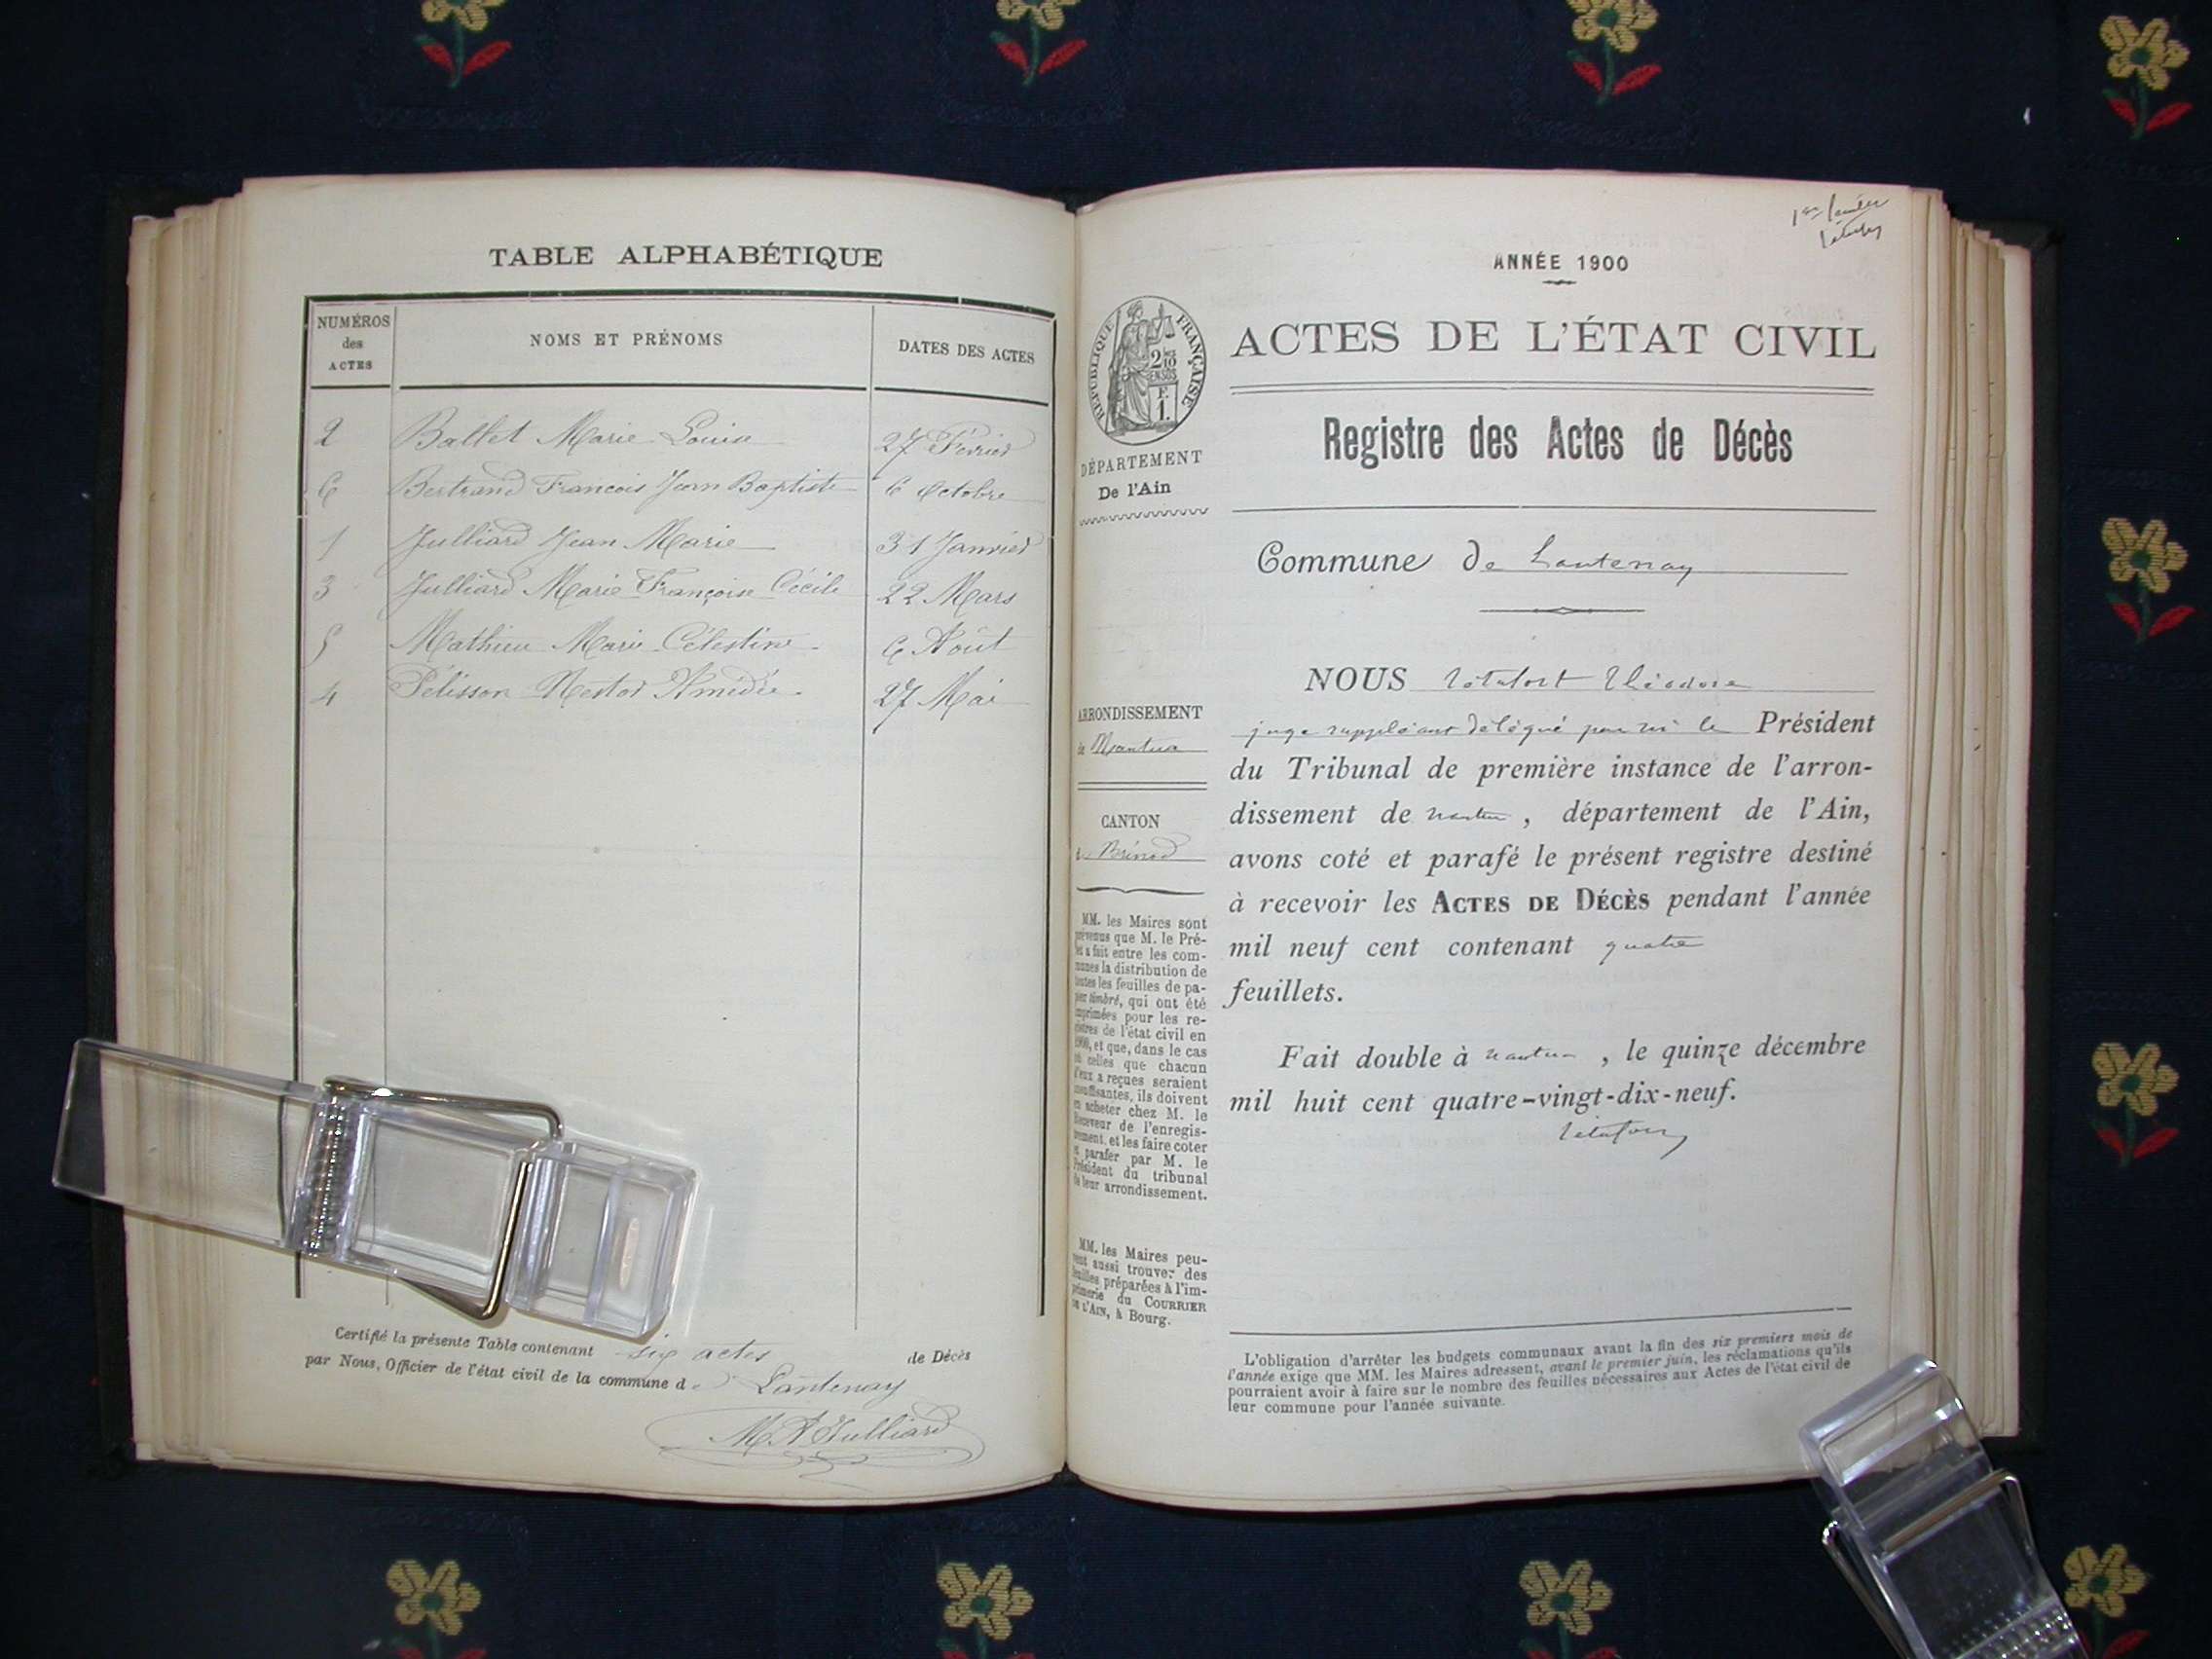 TABLE ALPHABÉTIQUE
NUMÉROS
des
ACTES
NOMS ET PRÉNOMS
DATES DES ACTES
2 Ballet Marie Louise 27 Février
6 Bertrand François Jean Baptiste 6 Octobre
1 Julliard Jean Marie 31 Janvier
3 Julliard Marie Françoise Cécile 22 Mars
5 Mathieu Marie Célestine 6 Août
4 Pélisson Nestor Amédée 27 Mai
Certifié la présente Table contenant six actes de Décès
par Nous, Officier de l'état civil de la commune de Lantenay
M. A Julliard
1er
ANNÉE 1900
RÉPUBLIQUE FRANÇAISE
2/10
EN SUS
F.
1.
ACTES DE L'ÉTAT CIVIL
Registre des Actes de Décès
DÉPARTEMENT
De l'Ain
Commune de Lantenay
NOUS Théodore
juge suppléant délégué par le Président
du Tribunal de première instance de l'arron-
dissement de Nantua, département de l'Ain,
avons coté et parafé le présent registre destiné
à recevoir les ACTES DE DÉCÈS pendant l'année
mil neuf cent contenant quatre
feuillets.
Fait double à Nantua, le quinze décembre
mil huit cent quatre-vingt-dix-neuf.
ARRONDISSEMENT
de Nantua
CANTON
de Brénod
MM. les Maires sont
prévenus que M. le Pré-
fet a fait entre les com-
munes la distribution de
toutes les feuilles de pa-
pier timbré, qui ont été
imprimées pour les re-
gistres de l'état civil en
1900, et que, dans le cas
où celles que chacun
d'eux a reçues seraient
insuffisantes, ils doivent
en acheter chez M. le
Receveur de l'enregis-
trement, et les faire coter
et parafer par M. le
Président du tribunal
de leur arrondissement.
MM. les Maires peu-
vent aussi trouver des
feuilles préparées à l'im-
primerie du COURRIER
DE L'AIN, à Bourg.
L'obligation d'arrêter les budgets communaux avant la fin des six premiers mois de
l'année exige que MM. les Maires adressent, avant le premier juin, les réclamations qu'ils
pourraient avoir à faire sur le nombre des feuilles nécessaires aux Actes de l'état civil de
leur commune pour l'année suivante.